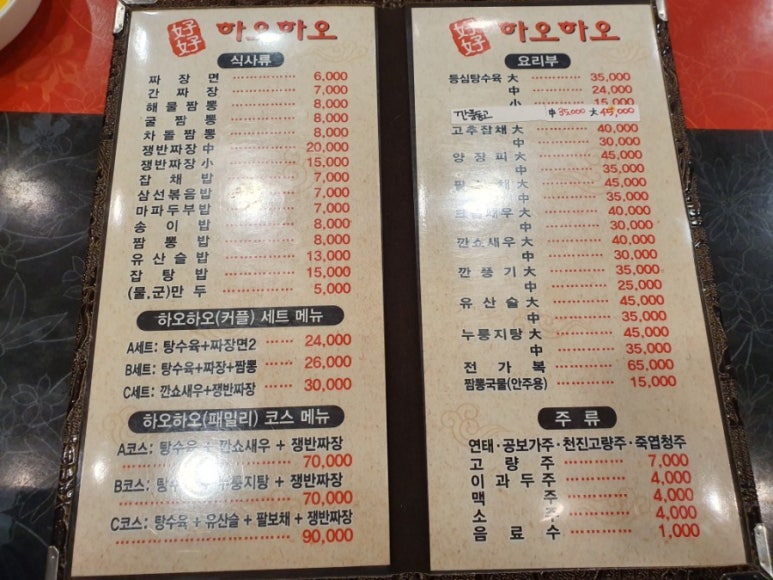 好好 하오하오
식사류
짜장면 6,000
간짜장 7,000
해물짬뽕 8,000
굴짬뽕 8,000
차돌짬뽕 8,000
쟁반짜장 中 20,000
쟁반짜장 小 15,000
잡채밥 7,000
삼선볶음밥 7,000
마파두부밥 7,000
송이밥 8,000
짬뽕밥 8,000
유산슬밥 13,000
잡탕밥 15,000
(물,군)만두 5,000
하오하오(커플) 세트 메뉴
A세트: 탕수육+짜장면2 24,000
B세트: 탕수육+짜장+짬뽕 26,000
C세트: 깐쇼새우+쟁반짜장 30,000
하오하오(패밀리) 코스 메뉴
A코스: 탕수육 + 깐쇼새우 + 쟁반짜장
70,000
B코스: 탕수육 + 누룽지탕 + 쟁반짜장
70,000
C코스: 탕수육 + 유산슬 + 팔보채 + 쟁반짜장
90,000
好好 하오하오
요리부
등심탕수육 大 35,000
中 24,000
小 15,000
中 35,000 大 45,000
고추잡채 大 40,000
中 30,000
양장피 大 45,000
中 35,000
팔보채 大 45,000
中 35,000
새우 大 40,000
中 30,000
깐쇼새우 大 40,000
中 30,000
깐풍기 大 35,000
中 25,000
유산슬 大 45,000
中 35,000
누룽지탕 大 45,000
中 35,000
전가복 65,000
짬뽕국물(안주용) 15,000
주류
연태·공보가주·천진고량주·죽엽청주
고량주 7,000
이과두주 4,000
맥주 4,000
소주 4,000
음료수 1,000